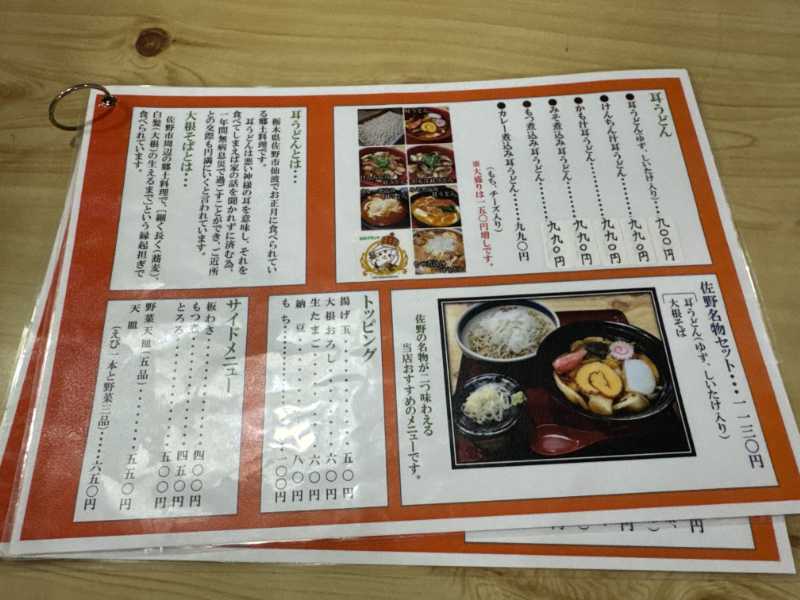 耳うどん
●耳うどん(ゆず、しいたけ入り)…九〇〇円
●けんちん汁耳うどん………九九〇円
●かも汁耳うどん………九九〇円
●みそ煮込み耳うどん………九九〇円
●もつ煮込み耳うどん………九九〇円
●カレー煮込み耳うどん………九九〇円
(もち、チーズ入り)
※大盛りは一五〇円増しです。
耳うどんとは…
栃木県佐野市仙波でお正月に食べられてい
る郷土料理です。
耳うどんは悪い神様の耳を意味し、それを
食べてしまえば家の話を聞かれずに済む為、
一年間無病息災で過ごすことができ、ご近所
との交際も円満にいくと言われています。
大根そばとは…
佐野市周辺の郷土料理で、「細く長く(蕎麦)、
白髪(大根)の生えるまで」という縁起担ぎで
食べられています。
佐野名物セット…一一三〇円
耳うどん(ゆず、しいたけ入り)
大根そば
佐野の名物が二つ味わえる
当店おすすめのメニューです。
トッピング
揚げ玉………五〇円
大根おろし………六〇円
生たまご………六〇円
納豆………八〇円
もち………一〇〇円
サイドメニュー
板わさ………四〇〇円
もつ煮………四五〇円
とろろ………
野菜天皿(五品)………五〇〇円
天皿………五五〇円
(えび一本と野菜三品)……六五〇円